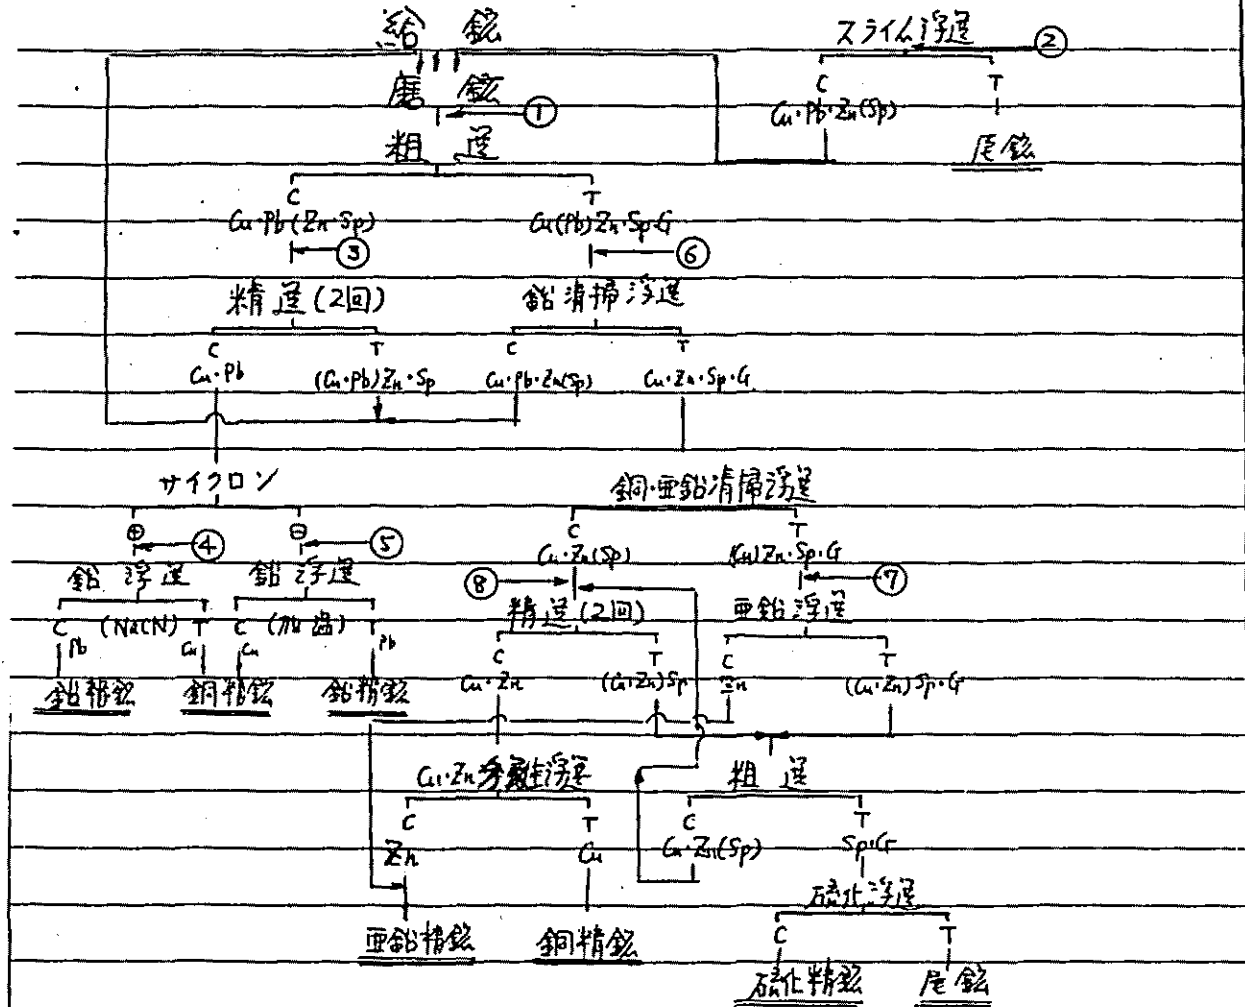 給鉱 スライム浮選 ②
C T
磨鉱 ① Cu・Pb・Zn(Sp)
粗選 尾鉱
C T
Cu・Pb(Zn・Sp) Cu(Pb)Zn・Sp・G
③ ⑥
精選(2回) 鉛清掃浮選
C T C T
Cu・Pb (Cu・Pb)Zn・Sp Cu・Pb・Zn(Sp) Cu・Zn・Sp・G
サイクロン 銅・亜鉛清掃浮選
⊕ ⊖ C T
④ ⑤ Cu・Zn(Sp) (Cu)Zn・Sp・G
鉛浮選 鉛浮選 ⑧ ⑦
精選(2回) 亜鉛浮選
C (NaCN) T C (加温) T
Pb Cu Cu Pb C T C T
鉛精鉱 銅精鉱 鉛精鉱 Cu・Zn (Cu・Zn)Sp Zn (Cu・Zn)Sp・G
Cu・Zn分離浮選 粗選
C T C T
Zn Cu Cu・Zn(Sp) Sp・G
硫化浮選
亜鉛精鉱 銅精鉱 C T
硫化精鉱 尾鉱